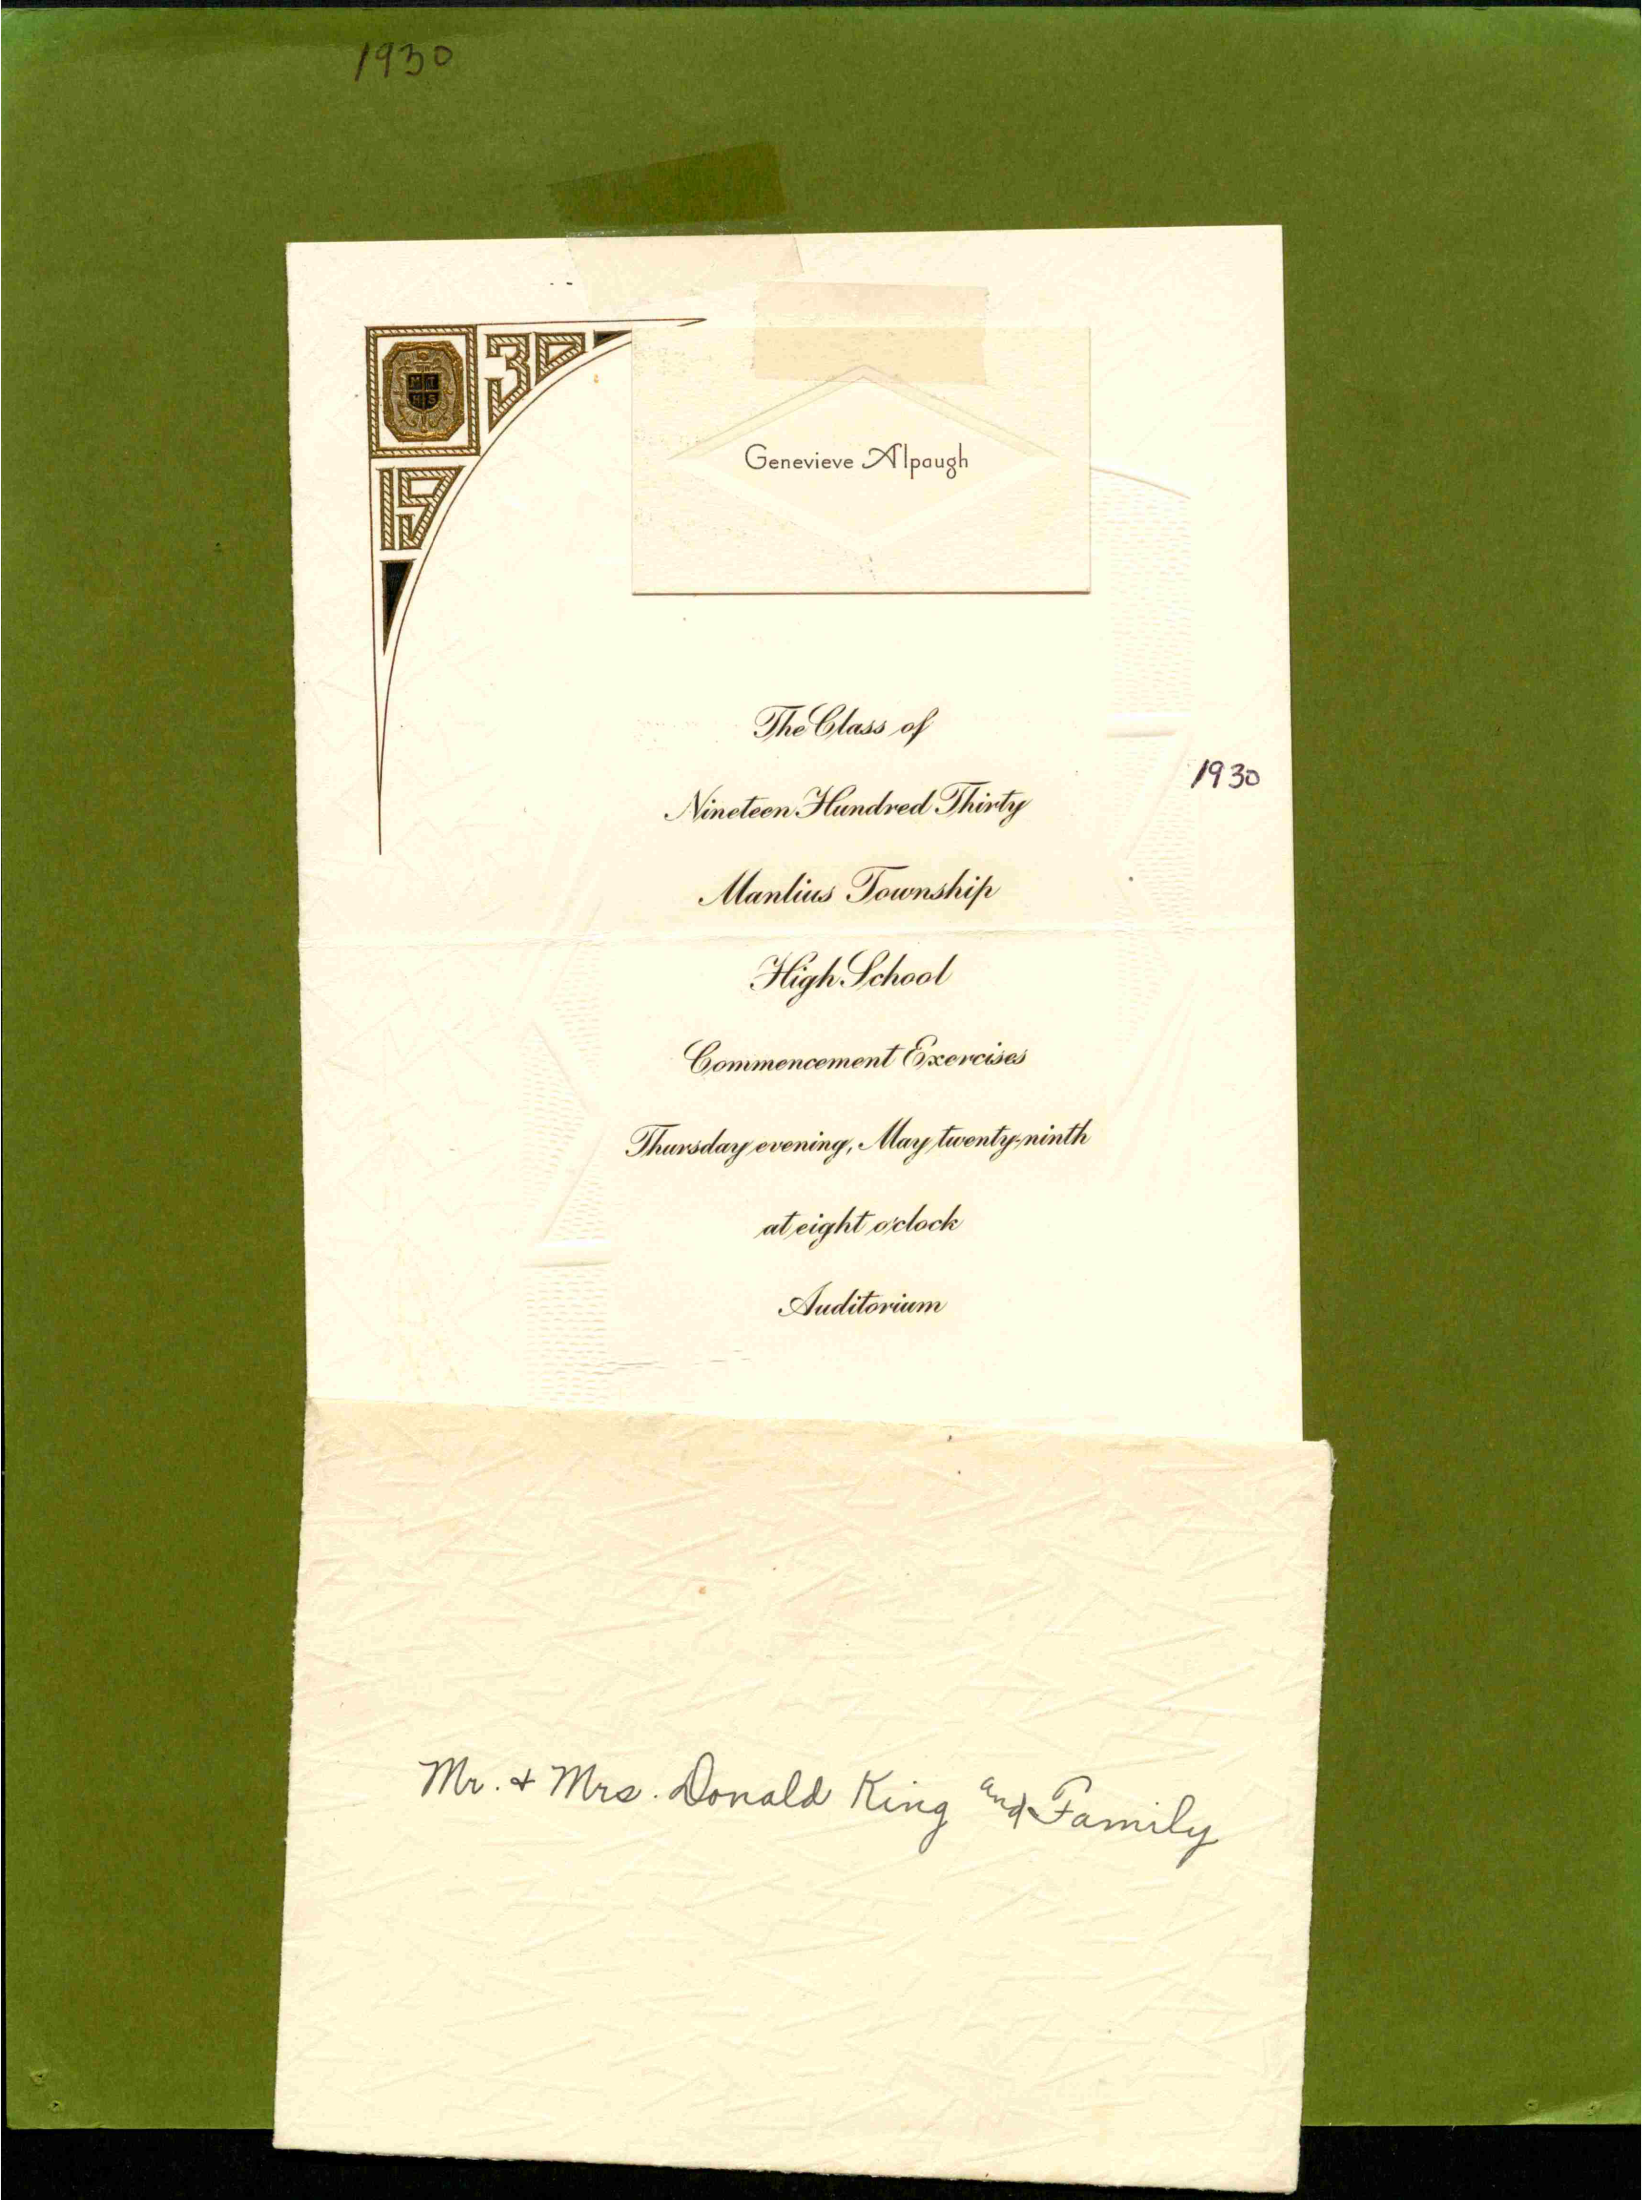 1930
30
M T
H S
19
Genevieve Alpaugh
The Class of
Nineteen Hundred Thirty
Manlius Township
1930
High School
Commencement Exercises
Thursday evening, May twenty-ninth
at eight o'clock
Auditorium
Mr. + Mrs. Donald King and Family